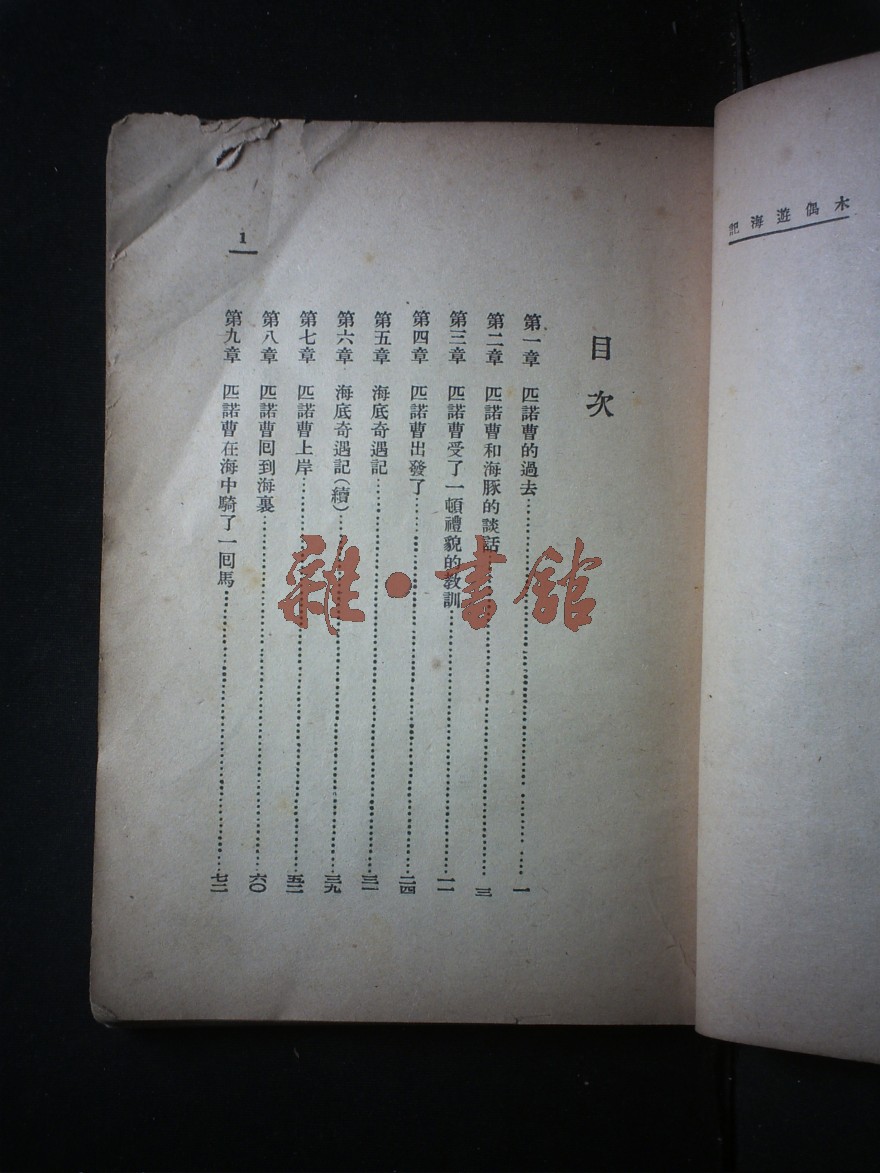 木偶遊海記
目次
第一章 匹諾曹的過去…………一
第二章 匹諾曹和海豚的談話…………三
第三章 匹諾曹受了一頓禮貌的教訓…………一一
第四章 匹諾曹出發了…………二四
第五章 海底奇遇記…………三一
第六章 海底奇遇記(續)…………三九
第七章 匹諾曹上岸…………五二
第八章 匹諾曹囘到海裏…………六〇
第九章 匹諾曹在海中騎了一囘馬…………七二
1
雜·書館